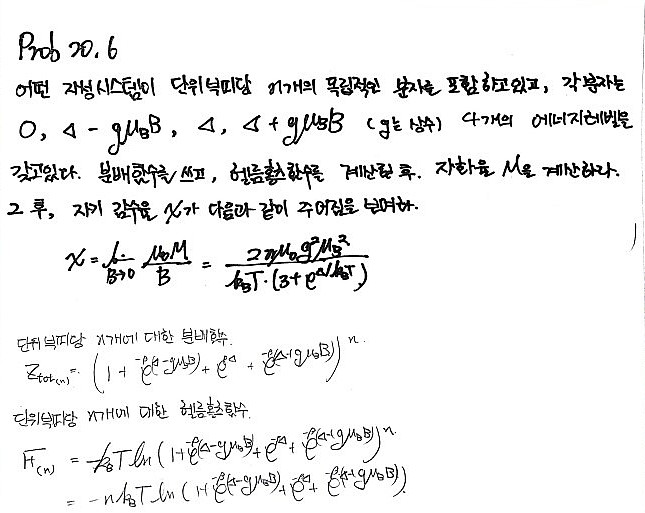 Prob 20.6
어떤 자성시스템이 단위부피당 n개의 독립적인 분자를 포함하고있고, 각분자는
0, Δ - gμ_B B, Δ, Δ + gμ_B B (g는 상수) 4개의 에너지레벨을
갖고있다. 분배함수를 쓰고, 헬름홀츠함수를 계산한 후. 자화율 M을 계산하라.
그 후, 자기 감수율 χ가 다음과 같이 주어짐을 보여라.
χ = lim_{B→0} μ₀M/B = 2nμ₀g²μ_B² / (k_B T·(3+e^{Δ/k_B T}))
단위부피당 n개에 대한 분배함수.
Z_{tot(n)} = (1 + e^{-β(Δ-gμ_B B)} + e^{-βΔ} + e^{-β(Δ+gμ_B B)})^n.
단위부피당 n개에 대한 헬름홀츠함수.
F_{(n)} = -k_B T ln (1+e^{-β(Δ-gμ_B B)} + e^{-βΔ} + e^{-β(Δ+gμ_B B)})^n.
= -n k_B T ln (1+e^{-β(Δ-gμ_B B)} + e^{-βΔ} + e^{-β(Δ+gμ_B B)}).